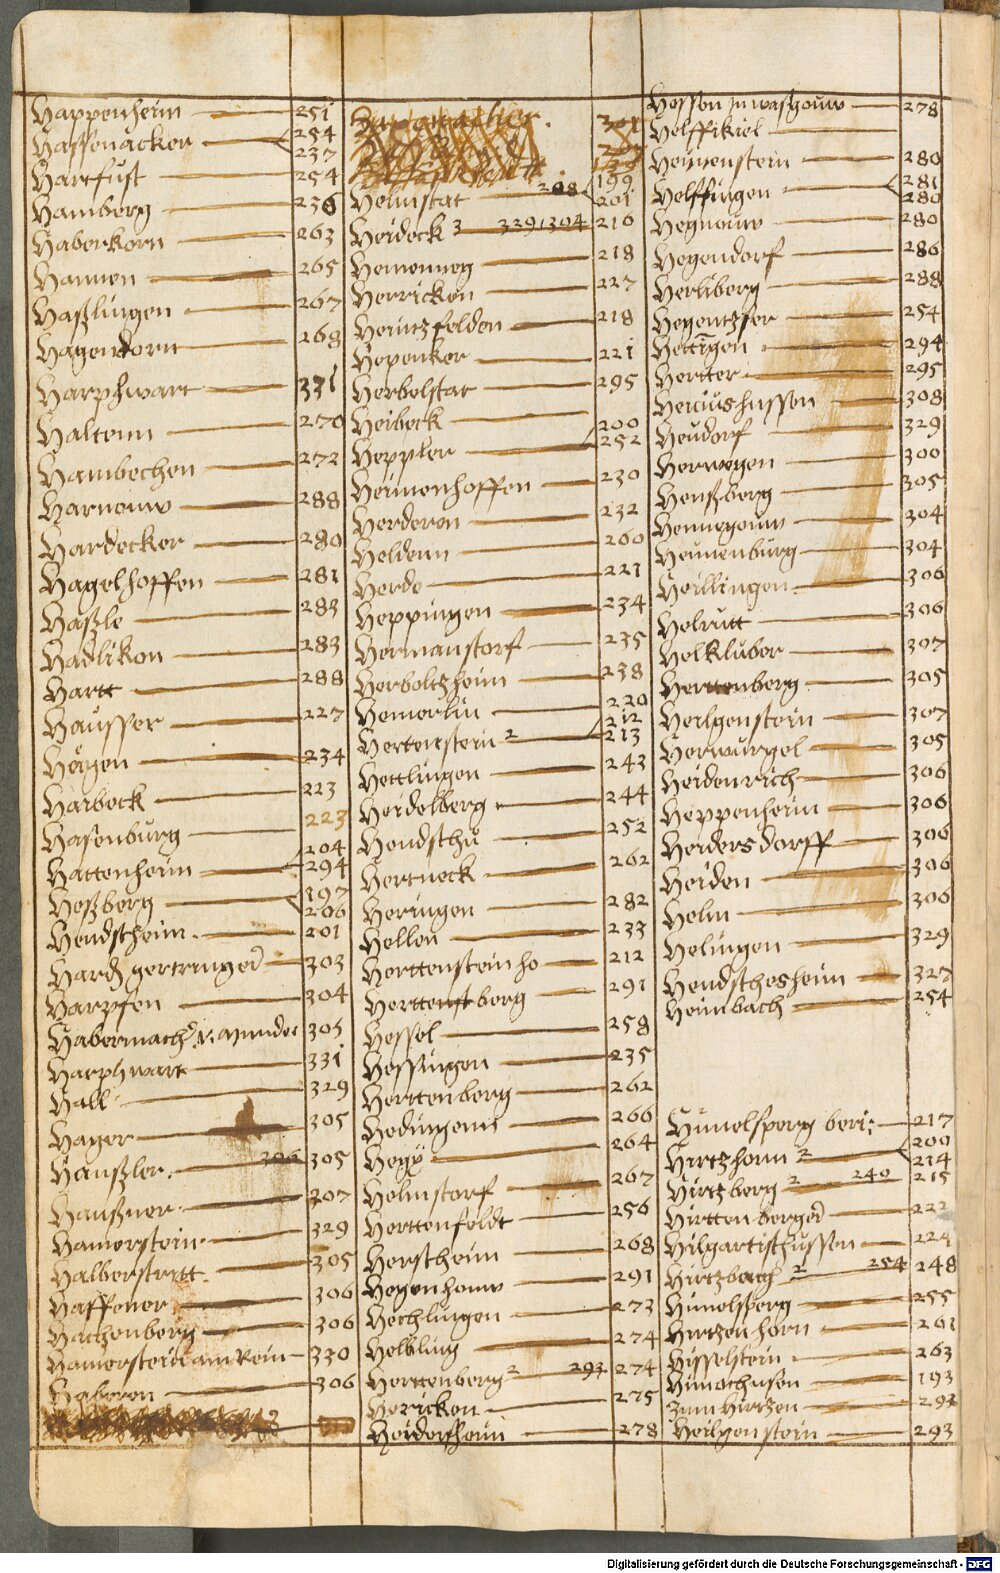 Happenheim 251
Hassenacker 254 237
Hartfust 254
Hamberg 236
Haberkorn 263
Hannen 265
Haßlingen 267
Hagendorn 268
Harphwart 331
Haltenn 270
Hambechen 272
Harnouw 288
Hardecker 280
Hagelhoffen 281
Haßle 283
Hadlikon 283
Hartt 288
Hausser 227
Högen 234
Harbeck 223
Hasenburg 223
Hattenheim 204 294
Heßberg 197 206
Hendscheim 201
Hard gertringer 303
Harpfen 304
Habermach 305
Harphwart 331
Hall 329
Hager 305
Hanßler 306 305
Haußner 207
Hamerstein 329
Halberstritt 305
Haffener 306
Hatzenberg 306
Hamerstein am Rein 330
Haberen 306
301
Helmstat 208 199 201
Heideck 3 329 304 210
Hemenneg 218
Herricken 227
Heintzfelden 218
Hepenker 221
Herbelstat 295
Heibeck 200
Heppler 252
Heimenhoffen 230
Herderen 232
Heldenn 260
Herde 221
Heppingen 234
Hermanstorf 235
Herboltzheim 238
Hemerlin 220
Hertenstein 2 212 213
Hettlingen 243
Heidelberg 244
Hendschu 252
Hertneck 262
Heringen 282
Hellen 233
Herttenstein ho 212
Herttenstberg 291
Hessel 258
Hessingen 235
Herttenberg 262
Hedingenn 266
Hegÿ 264
Helmstorf 267
Herttenfeldt 256
Herscheim 268
Hegenhouw 291
Hechlingen 273
Helbling 274
Herttenberg 2 293 274
Hericken 275
Heidorffheim 278
Hessen in wasgouw 278
Helffikiel
Heimenstein 280
Helffingen 281 280
Hegnouw 280
Hegendorf 286
Herliberg 288
Hegentzfer 254
Hettigen 294
Hertter 295
Heciushussen 308
Heudorf 329
Herwegen 300
Henßberg 305
Hennegouw 304
Heimenburg 304
Heillingen 306
Helrutt 306
Helkluber 307
Herttenberg 305
Heilgenstein 307
Herwurgel 305
Heidenrich 306
Heppenheim 306
Heidersdorff 306
Heiden 306
Helm 306
Helingen 329
Hendschesheim 327
Heimbach 254
Himelsperg beri: 217
Hirtzhorn 2 209 214
Hirtzberg 2 240 215
Hirttenberger 222
Hilgartischussen 224
Hirtzbach 2 254 248
Himelsperg 255
Hirtzenhorn 261
Hisselstein 263
Himachusen 193
zum Hirtzen 292
Heilgenstein 293
Digitalisierung gefördert durch die Deutsche Forschungsgemeinschaft - DFG